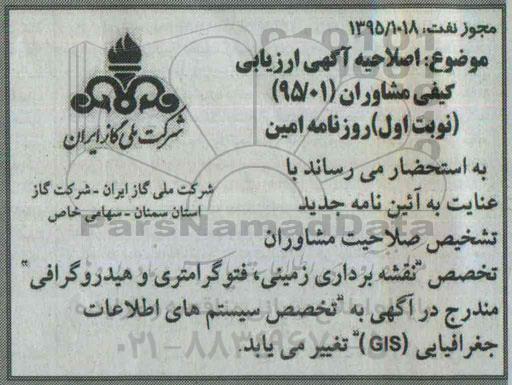 مجوز نفت: ۱۳۹۵/۱۰۱۸
موضوع: اصلاحیه آگهی ارزیابی
کیفی مشاوران (۹۵/۰۱)
(نوبت اول) روزنامه امین
شرکت ملی گاز ایران
شرکت ملی گاز ایران - شرکت گاز
استان سمنان - سهامی خاص
به استحضار می رساند با
عنایت به آئین نامه جدید
تشخیص صلاحیت مشاوران
تخصص "نقشه برداری زمینی، فتوگرامتری و هیدروگرافی"
مندرج در آگهی به "تخصص سیستم های اطلاعات
جغرافیایی (GIS)" تغییر می یابد.
ParsNamadData